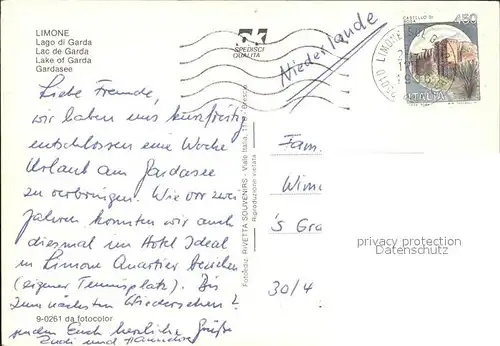 LIMONE
Lago di Garda
Lac de Garda
Lake of Garda
Gardasee
SPEDISCI
QUALITÀ
Niederlande
CASTELLO DI
450
25010 LIMONE SUL G
ITALIA
Liebe Freunde,
wir haben uns kurzfristig
entschlossen eine Woche
Urlaub am Gardasee
zu verbringen. Wie vor zwei
Jahren konnten wir auch
diesmal im Hotel Ideal
in Limone Quartier beziehen
(eigener Tennisplatz). Bis
zum nächsten Wiedersehen
senden Euch herzliche Grüße
und Hannelore
9-0261 da fotocolor
Fonediz. RIVETTA SOUVENIRS - Viale Italia, 11/b - Brescia
Riproduzione vietata
Fam.
Wim
's Gra
30/4
privacy protection
watermark